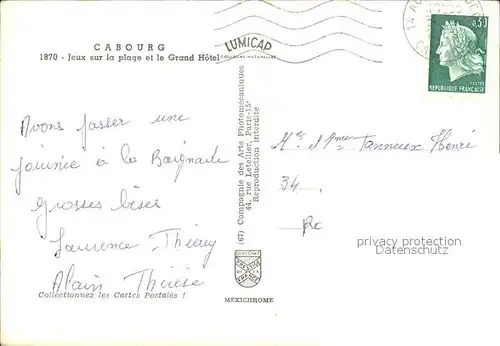 CABOURG
1870 - Jeux sur la plage et le Grand Hôtel
LUMICAP
COULEURS NATURELLES
14 
0,30
POSTES
REPUBLIQUE FRANÇAISE
Avons passer une
journée à la Baignade
grosses bises
Laurence - Thierry
Alain Thérèse
Collectionnez les Cartes Postales !
(67) Compagnie des Arts Photomécaniques
44, rue Letellier, Paris-15e
Reproduction interdite
MEXICHROME
Mr et Mme Tanneux Henri
34
privacy protection
Datenschutz